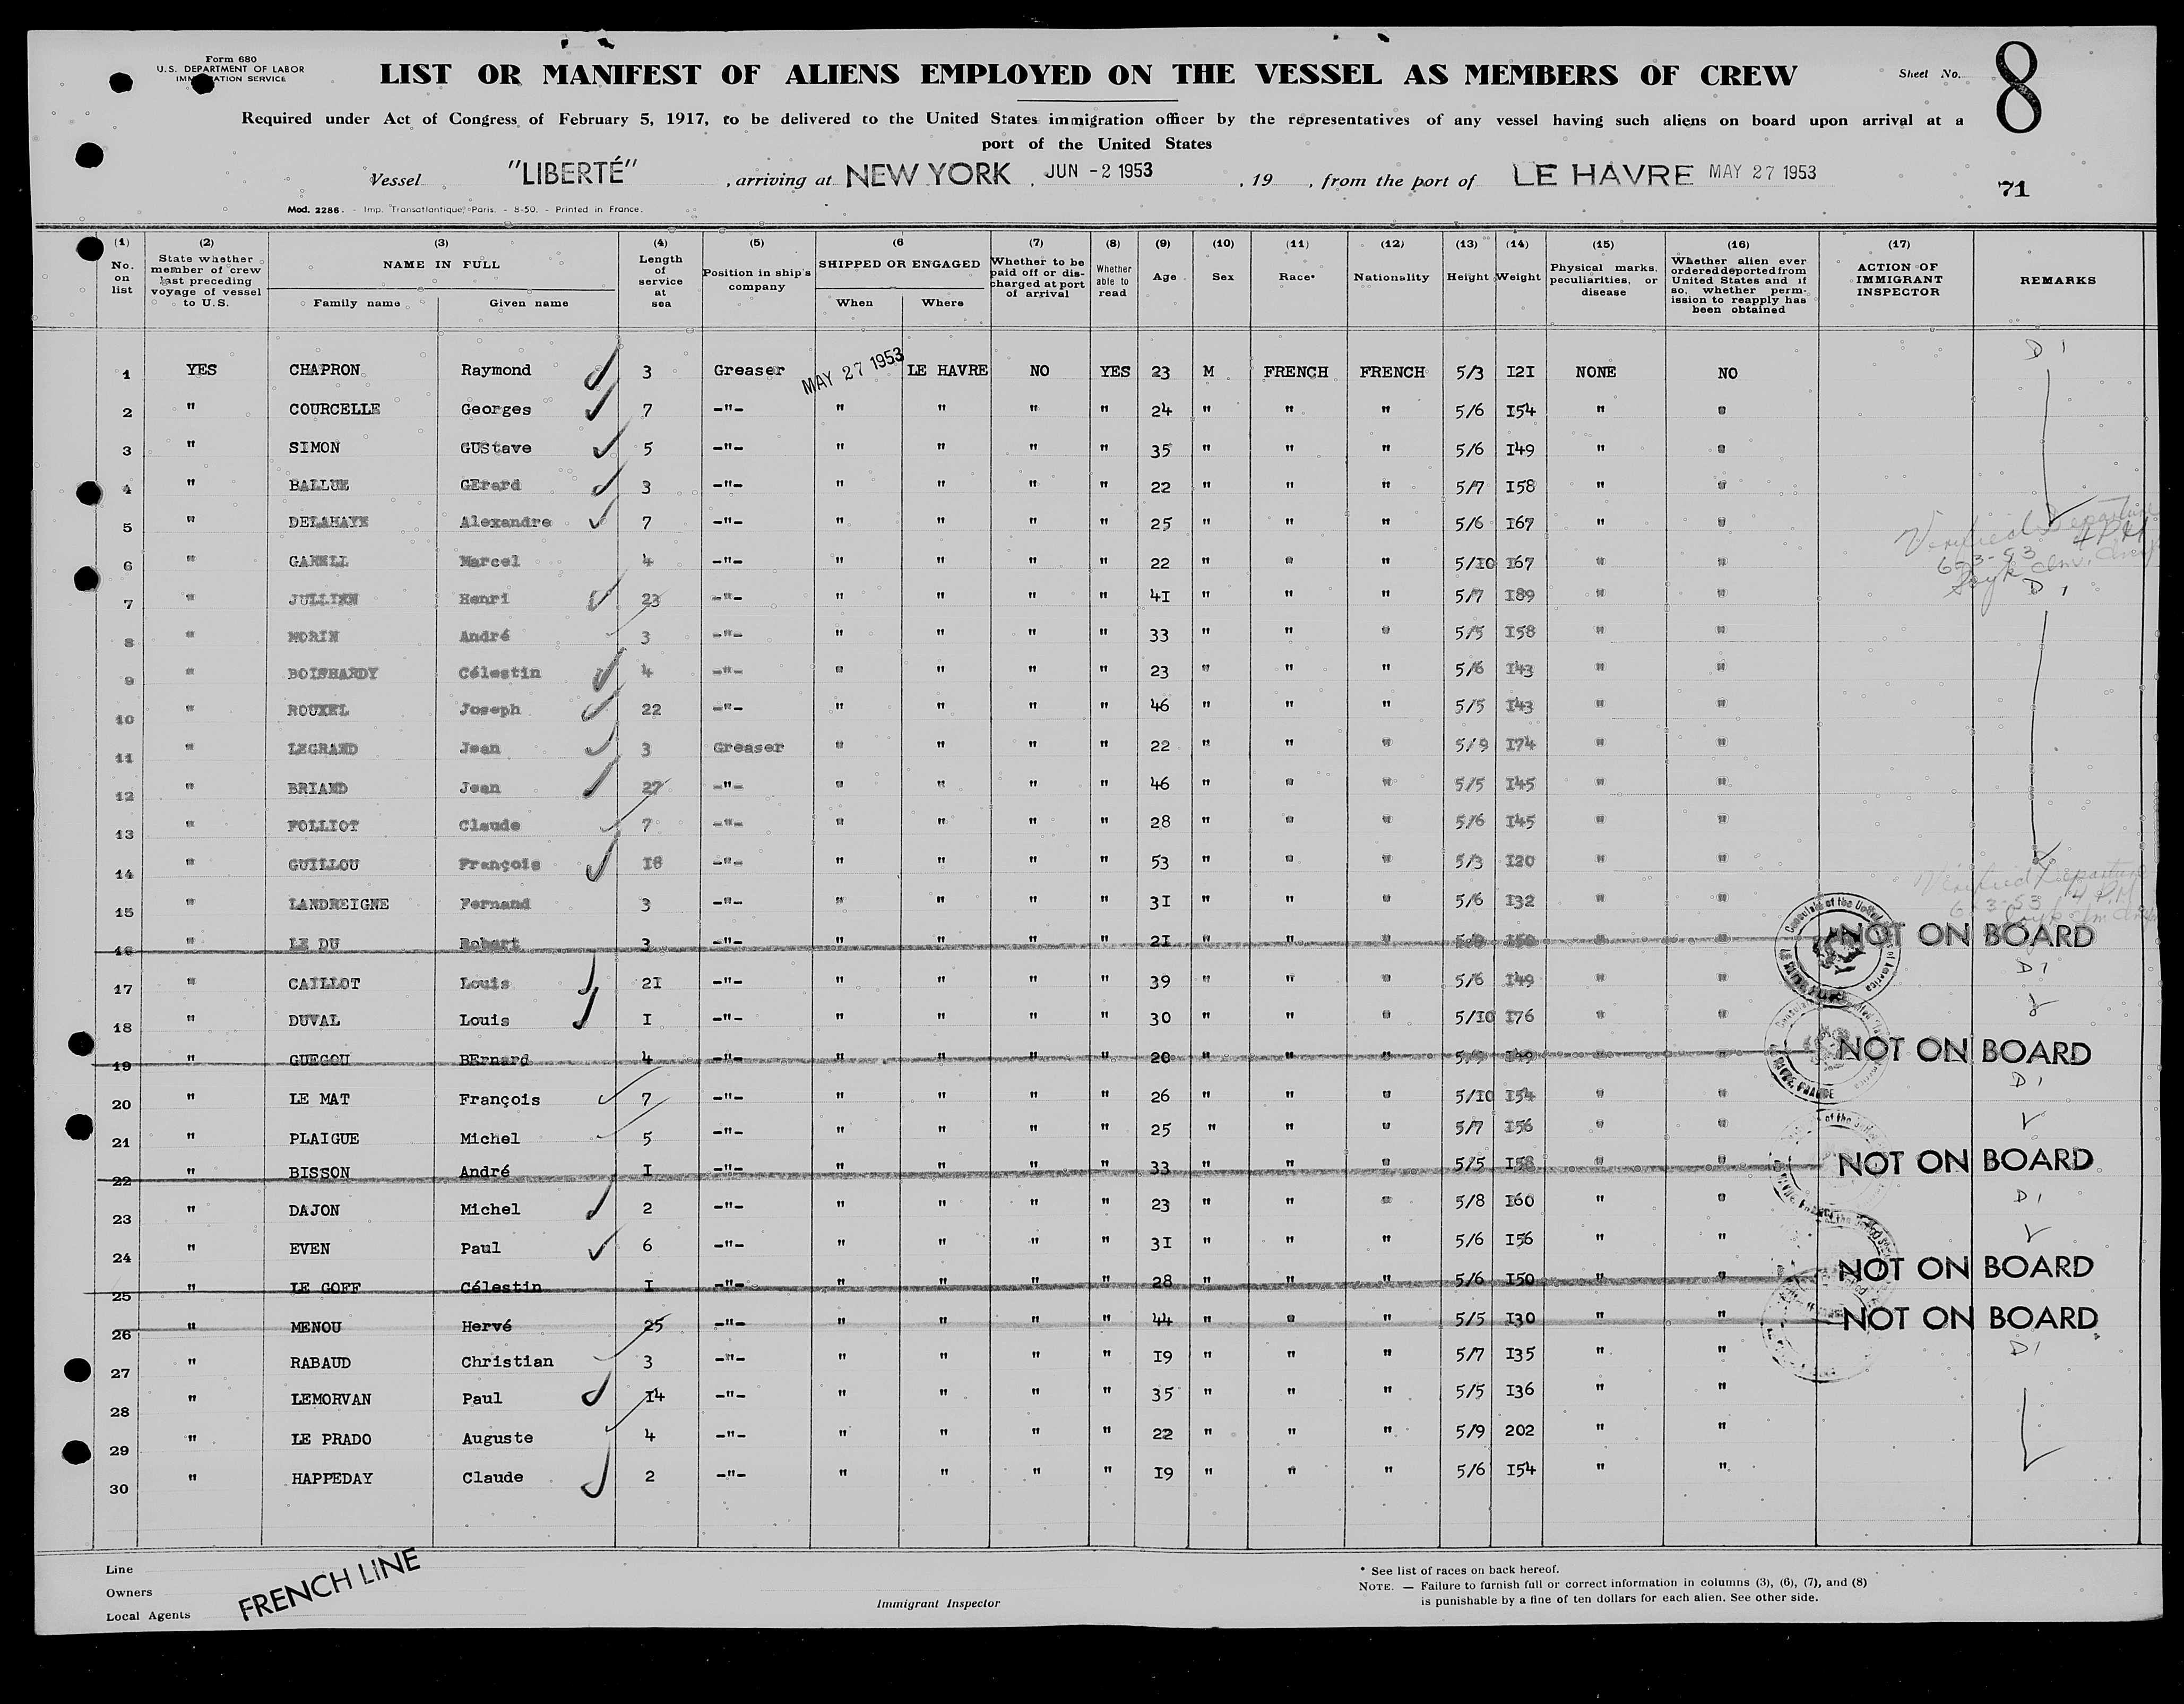 Form 680
U.S. DEPARTMENT OF LABOR
IMMIGRATION SERVICE
LIST OR MANIFEST OF ALIENS EMPLOYED ON THE VESSEL AS MEMBERS OF CREW
Sheet No. 8
Required under Act of Congress of February 5, 1917, to be delivered to the United States immigration officer by the representatives of any vessel having such aliens on board upon arrival at a
port of the United States
Vessel "LIBERTÉ", arriving at NEW YORK, JUN -2 1953, 19 , from the port of LE HAVRE MAY 27 1953
71
Mod. 2286. - Imp. Transatlantique, Paris. - 8-50. - Printed in France.
(1) No. on list (2) State whether member of crew last preceding voyage of vessel to U.S. (3) NAME IN FULL Family name Given name (4) Length of service at sea (5) Position in ship's company (6 SHIPPED OR ENGAGED When Where (7) Whether to be paid off or discharged at port of arrival (8) Whether able to read (9) Age (10) Sex (11) Race* (12) Nationality (13) Height (14) Weight (15) Physical marks, peculiarities, or disease (16) Whether alien ever ordered deported from United States and if so, whether permission to reapply has been obtained (17) ACTION OF IMMIGRANT INSPECTOR REMARKS
D 1
1 YES CHAPRON Raymond 3 Greaser MAY 27 1953 LE HAVRE NO YES 23 M FRENCH FRENCH 5/3 I2I NONE NO
2 " COURCELLE Georges 7 -"- " " " " 24 " " " 5/6 I54 " "
3 " SIMON GUStave 5 -"- " " " " 35 " " " 5/6 I49 " "
4 " BALLUE GErard 3 -"- " " " " 22 " " " 5/7 I58 " "
5 " DELAHAYE Alexandre 7 -"- " " " " 25 " " " 5/6 I67 " "
Verified Departure
6 " Marcel 4 -"- " " " " 22 " " " 5/I0 I67 " "
6-3-53 4 P.M.
7 " JULLIEN Henri 23 -"- " " " " 4I " " " 5/7 I89 " " D 1
8 " MORIN André 3 -"- " " " " 33 " " " 5/5 I58 " "
9 " BOISHARDY Célestin 4 -"- " " " " 23 " " " 5/6 I43 " "
10 " ROUXEL Joseph 22 -"- " " " " 46 " " " 5/5 I43 " "
11 " LEGRAND Jean 3 Greaser " " " " 22 " " " 5/9 I74 " "
12 " BRIAND Jean 27 -"- " " " " 46 " " " 5/5 I45 " "
13 " FOLLIOT Claude 7 -"- " " " " 28 " " " 5/6 I45 " "
14 " GUILLOU François I8 -"- " " " " 53 " " " 5/3 I20 " "
Verified Departure
15 " LANDREIGNE Fernand 3 -"- " " " " 3I " " " 5/6 I32 " "
6-3-53 4 P.M.
16 " LE DU Robert 3 -"- " " " " 2I " " " " " NOT ON BOARD
17 " CAILLOT Louis 2I -"- " " " " 39 " " " 5/6 I49 " " D 1
18 " DUVAL Louis I -"- " " " " 30 " " " 5/I0 I76 " "
19 " GUEGOU BErnard 4 -"- " " " " 20 " " " " " NOT ON BOARD
20 " LE MAT François 7 -"- " " " " 26 " " " 5/I0 I54 " " D 1
21 " PLAIGUE Michel 5 -"- " " " " 25 " " " 5/7 I56 " "
22 " BISSON André I -"- " " " " 33 " " " 5/5 I58 " " NOT ON BOARD
23 " DAJON Michel 2 -"- " " " " 23 " " " 5/8 I60 " " D 1
24 " EVEN Paul 6 -"- " " " " 3I " " " 5/6 I56 " "
25 " LE GOFF Célestin I -"- " " " " 28 " " " 5/6 I50 " " NOT ON BOARD
26 " MENOU Hervé 25 -"- " " " " 44 " " " 5/5 I30 " " NOT ON BOARD
27 " RABAUD Christian 3 -"- " " " " I9 " " " 5/7 I35 " " D 1
28 " LEMORVAN Paul I4 -"- " " " " 35 " " " 5/5 I36 " "
29 " LE PRADO Auguste 4 -"- " " " " 22 " " " 5/9 202 " "
30 " HAPPEDAY Claude 2 -"- " " " " I9 " " " 5/6 I54 " "
Line
Owners
Local Agents
FRENCH LINE
Immigrant Inspector
* See list of races on back hereof.
NOTE. — Failure to furnish full or correct information in columns (3), (6), (7), and (8)
is punishable by a fine of ten dollars for each alien. See other side.